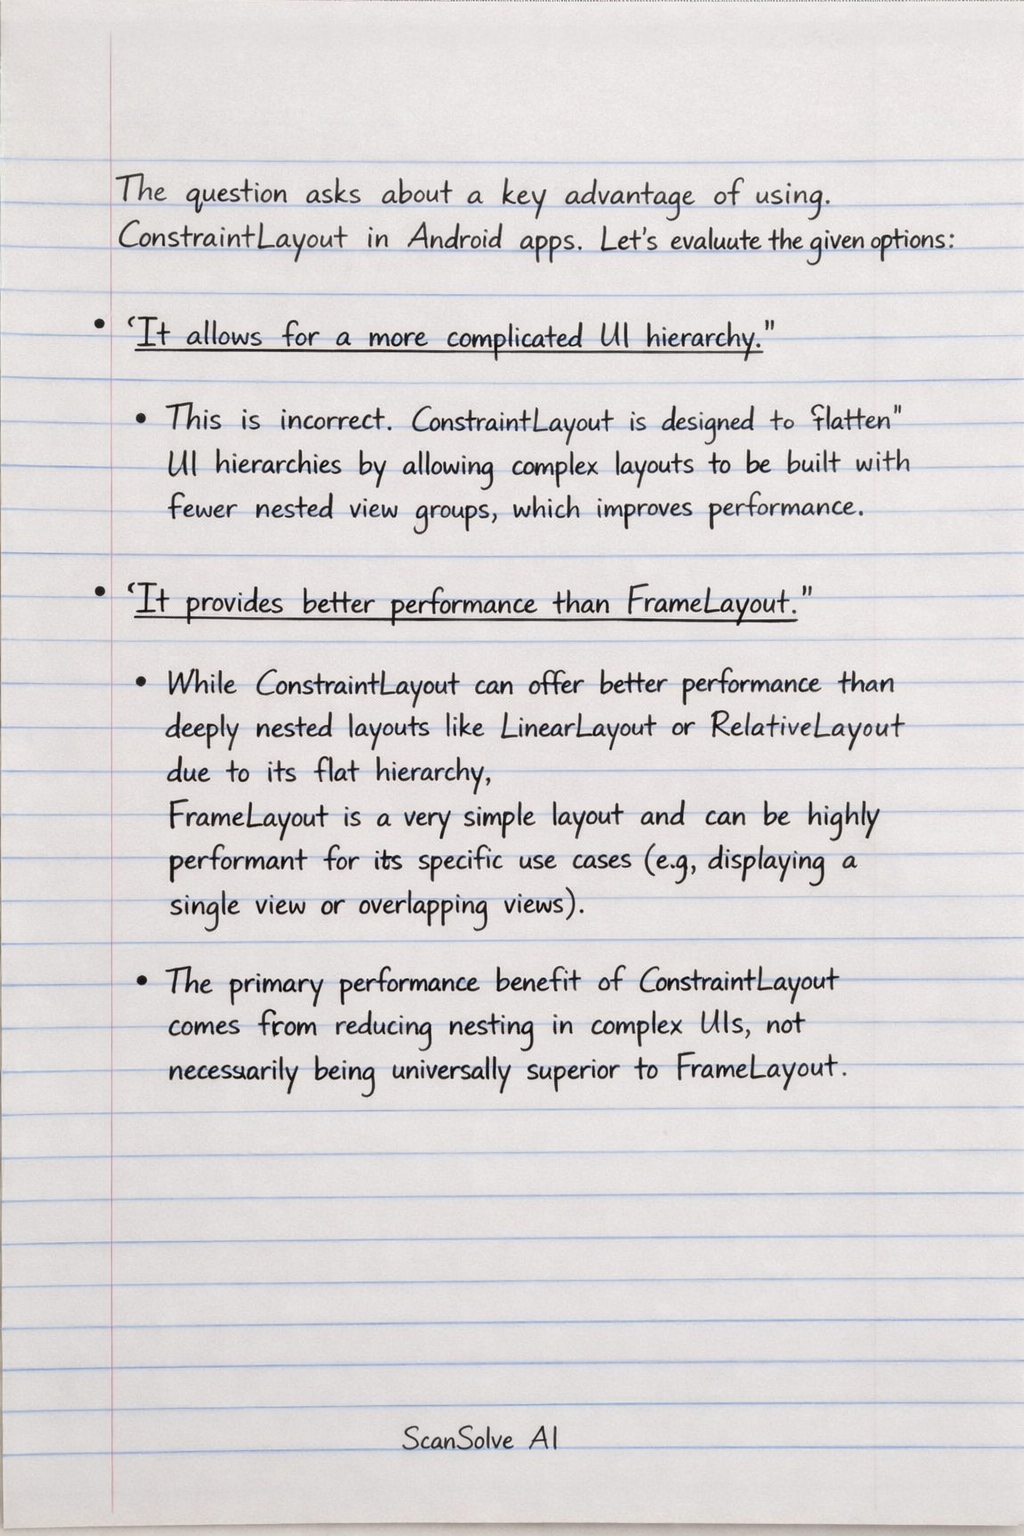 The question asks about a key advantage of using.
ConstraintLayout in Android apps. Let's evaluute the given options:
• “It allows for a more complicated UI hierarchy."
• This is incorrect. ConstraintLayout is designed to flatten"
UI hierarchies by allowing complex layouts to be built with
fewer nested view groups, which improves performance.
• “It provides better performance than FrameLayout."
• While ConstraintLayout can offer better performance than
deeply nested layouts like LinearLayout or RelativeLayout
due to its flat hierarchy,
FrameLayout is a very simple layout and can be highly
performant for its specific use cases (e.g, displaying a
single view or overlapping views).
• The primary performance benefit of ConstraintLayout
comes from reducing nesting in complex UIs, not
necessarily being universally superior to FrameLayout.
ScanSolve AI